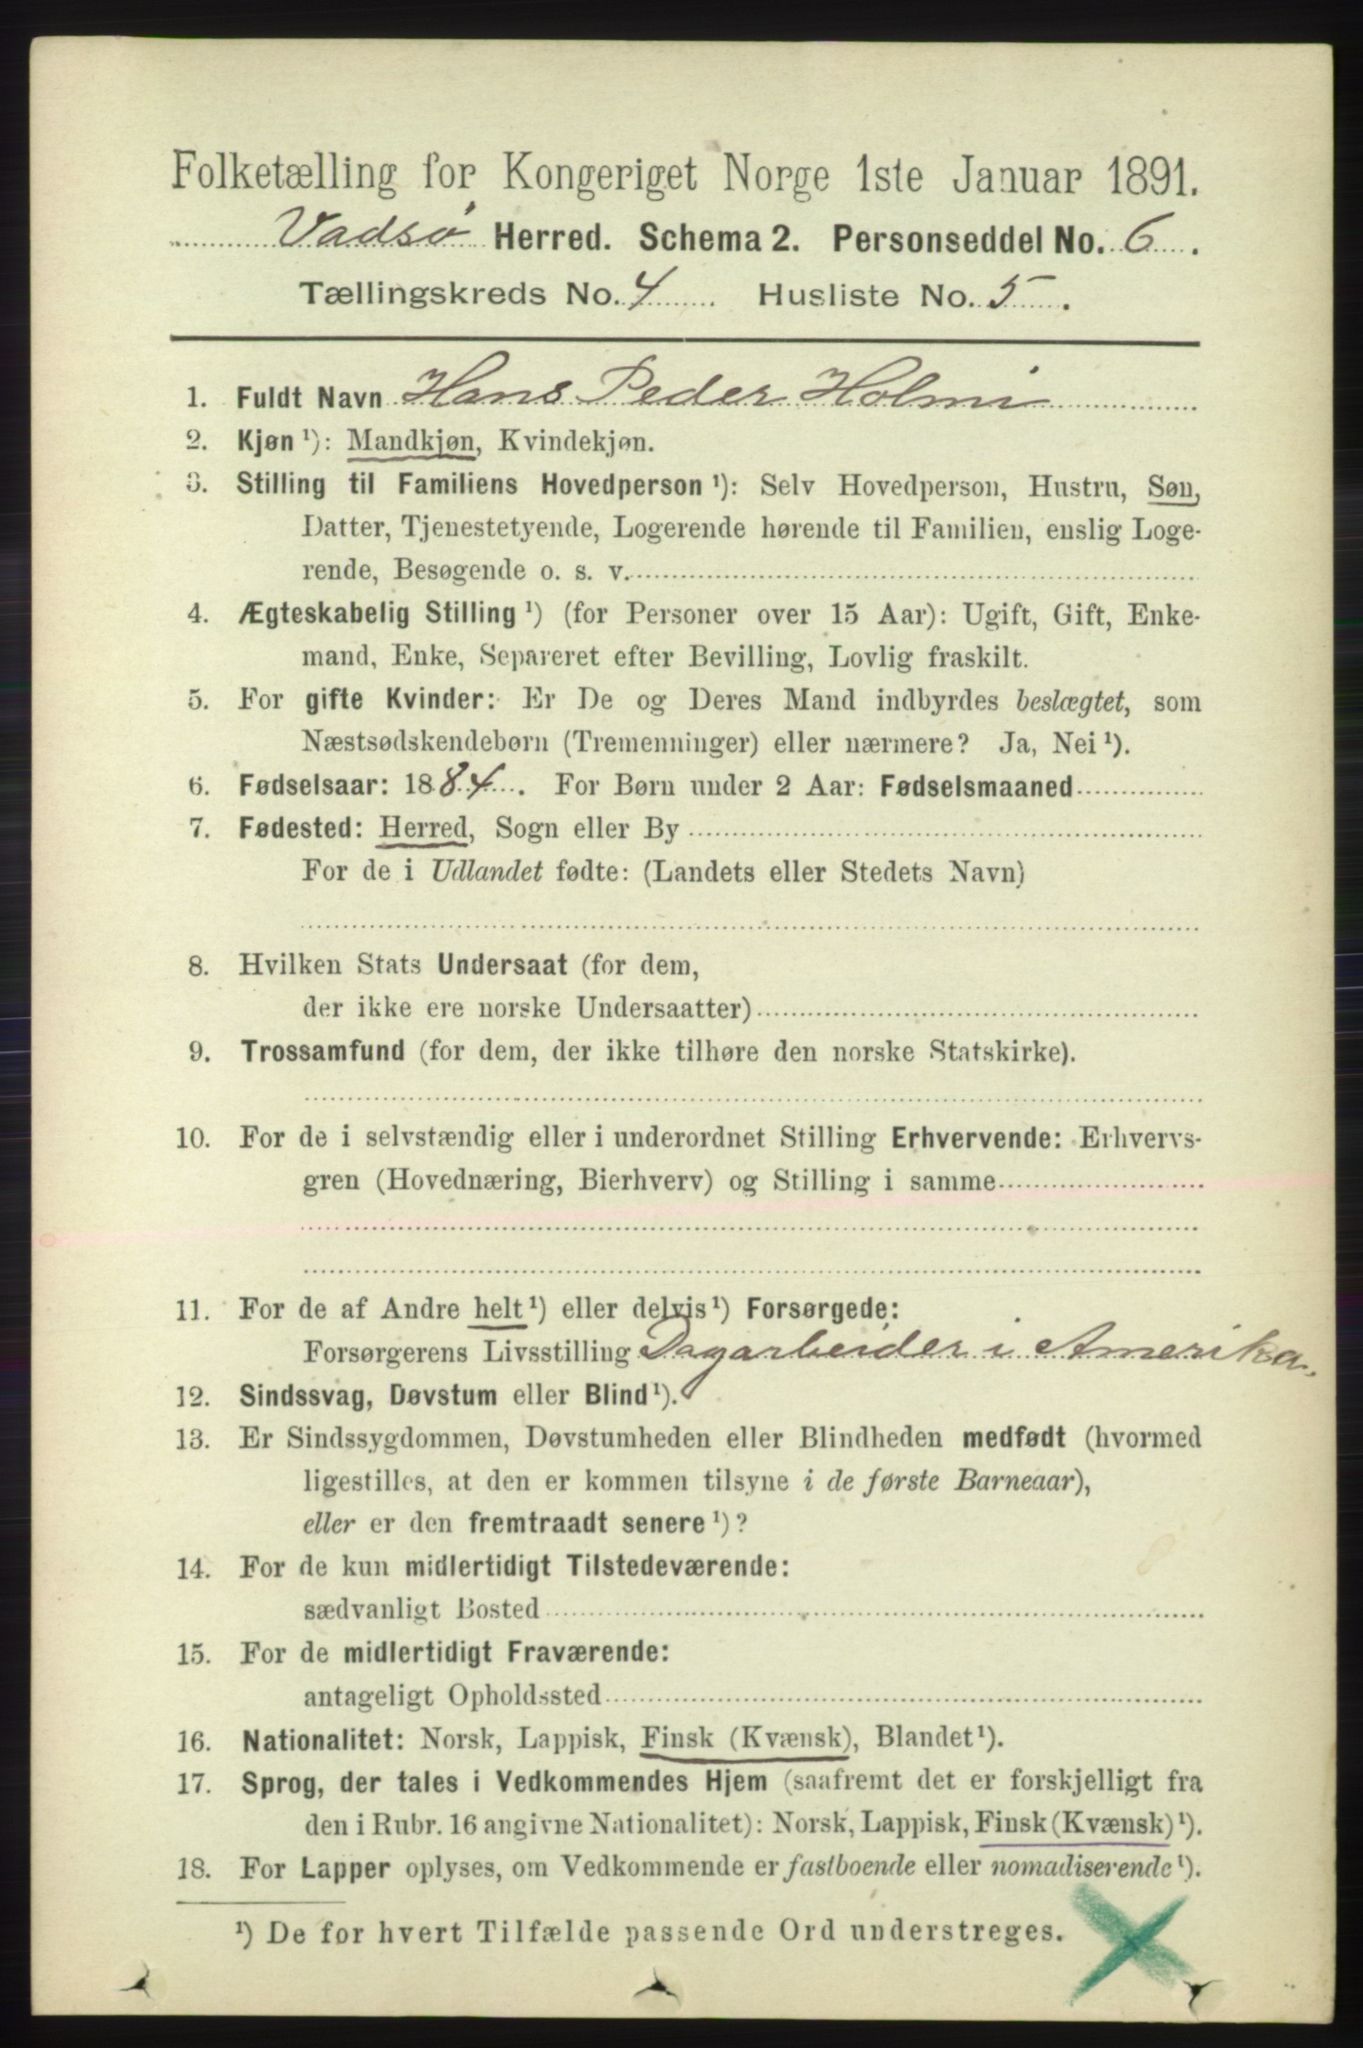 Folketælling for Kongeriget Norge 1ste Januar 1891.
Vadsø Herred. Schema 2. Personseddel No. 6.
Tællingskreds No. 4 Husliste No. 5.
1. Fuldt Navn Hans Peder Holmi
2. Kjøn ¹): Mandkjøn, Kvindekjøn.
3. Stilling til Familiens Hovedperson ¹): Selv Hovedperson, Hustru, Søn,
Datter, Tjenestetyende, Logerende hørende til Familien, enslig Loge-
rende, Besøgende o. s. v.
4. Ægteskabelig Stilling ¹) (for Personer over 15 Aar): Ugift, Gift, Enke-
mand, Enke, Separeret efter Bevilling, Lovlig fraskilt.
5. For gifte Kvinder: Er De og Deres Mand indbyrdes beslægtet, som
Næstsødskendebørn (Tremenninger) eller nærmere? Ja, Nei ¹).
6. Fødselsaar: 1884. For Børn under 2 Aar: Fødselsmaaned
7. Fødested: Herred, Sogn eller By
For de i Udlandet fødte: (Landets eller Stedets Navn)
8. Hvilken Stats Undersaat (for dem,
der ikke ere norske Undersaatter)
9. Trossamfund (for dem, der ikke tilhøre den norske Statskirke).
10. For de i selvstændig eller i underordnet Stilling Erhvervende: Erhvervs-
gren (Hovednæring, Bierhverv) og Stilling i samme
11. For de af Andre helt ¹) eller delvis ¹) Forsørgede:
Forsørgerens Livsstilling Dagarbeider i Amerika.
12. Sindssvag, Døvstum eller Blind ¹).
13. Er Sindssygdommen, Døvstumheden eller Blindheden medfødt (hvormed
ligestilles, at den er kommen tilsyne i de første Barneaar),
eller er den fremtraadt senere ¹)?
14. For de kun midlertidigt Tilstedeværende:
sædvanligt Bosted
15. For de midlertidigt Fraværende:
antageligt Opholdssted
16. Nationalitet: Norsk, Lappisk, Finsk (Kvænsk), Blandet ¹).
17. Sprog, der tales i Vedkommendes Hjem (saafremt det er forskjelligt fra
den i Rubr. 16 angivne Nationalitet): Norsk, Lappisk, Finsk (Kvænsk) ¹).
18. For Lapper oplyses, om Vedkommende er fastboende eller nomadiserende ¹).
¹) De for hvert Tilfælde passende Ord understreges.